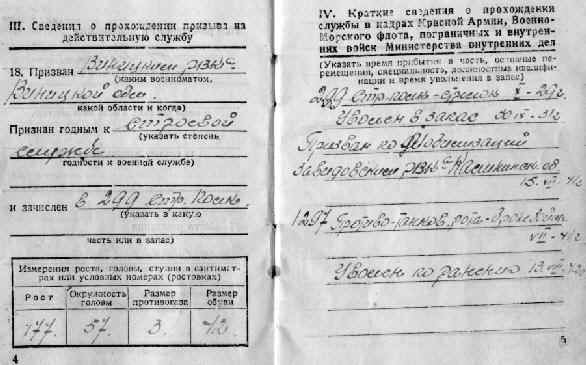 III. Сведения о прохождении призыва на
действительную службу
18. Призван Виницким РВК
(каким военкоматом,
Виницкой обл.
какой области и когда)
Признан годным к строевой
(указать степень
службе
годности к военной службе)
и зачислен в 299 Стр. Полк.
(указать в какую
часть или в запас)
Измерения роста, головы, ступни в сантимет-
рах или условных номерах (ростовках)
Рост Окружность головы Размер противогаза Размер обуви
177. 57. 3. 42.
4
IV. Краткие сведения о прохождении
службы в кадрах Красной Армии, Военно-
Морского флота, пограничных и внутрен-
них войск Министерства внутренних дел
(Указать время прибытия в часть, основные пе-
ремещения, специальность, должностные квалифи-
кации и время увольнения в запас)
299 Стр. полк
Уволен в запас
Призван по Мобилизаций
РВК
1297 Противо-танков. рота
Уволен по ранению
5